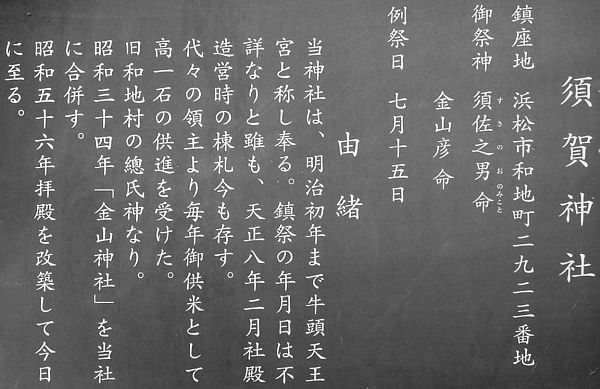 須賀神社
鎮座地　浜松市和地町二九二三番地
御祭神　須佐之男命
すさのおのみこと
金山彦命
例祭日　七月十五日
由緒
当神社は、明治初年まで牛頭天王
宮と称し奉る。鎮祭の年月日は不
詳なりと雖も、天正八年二月社殿
造営時の棟札今も存す。
代々の領主より毎年御供米として
高一石の供進を受けた。
旧和地村の總氏神なり。
昭和三十四年「金山神社」を当社
に合併す。
昭和五十六年拝殿を改築して今日
に至る。